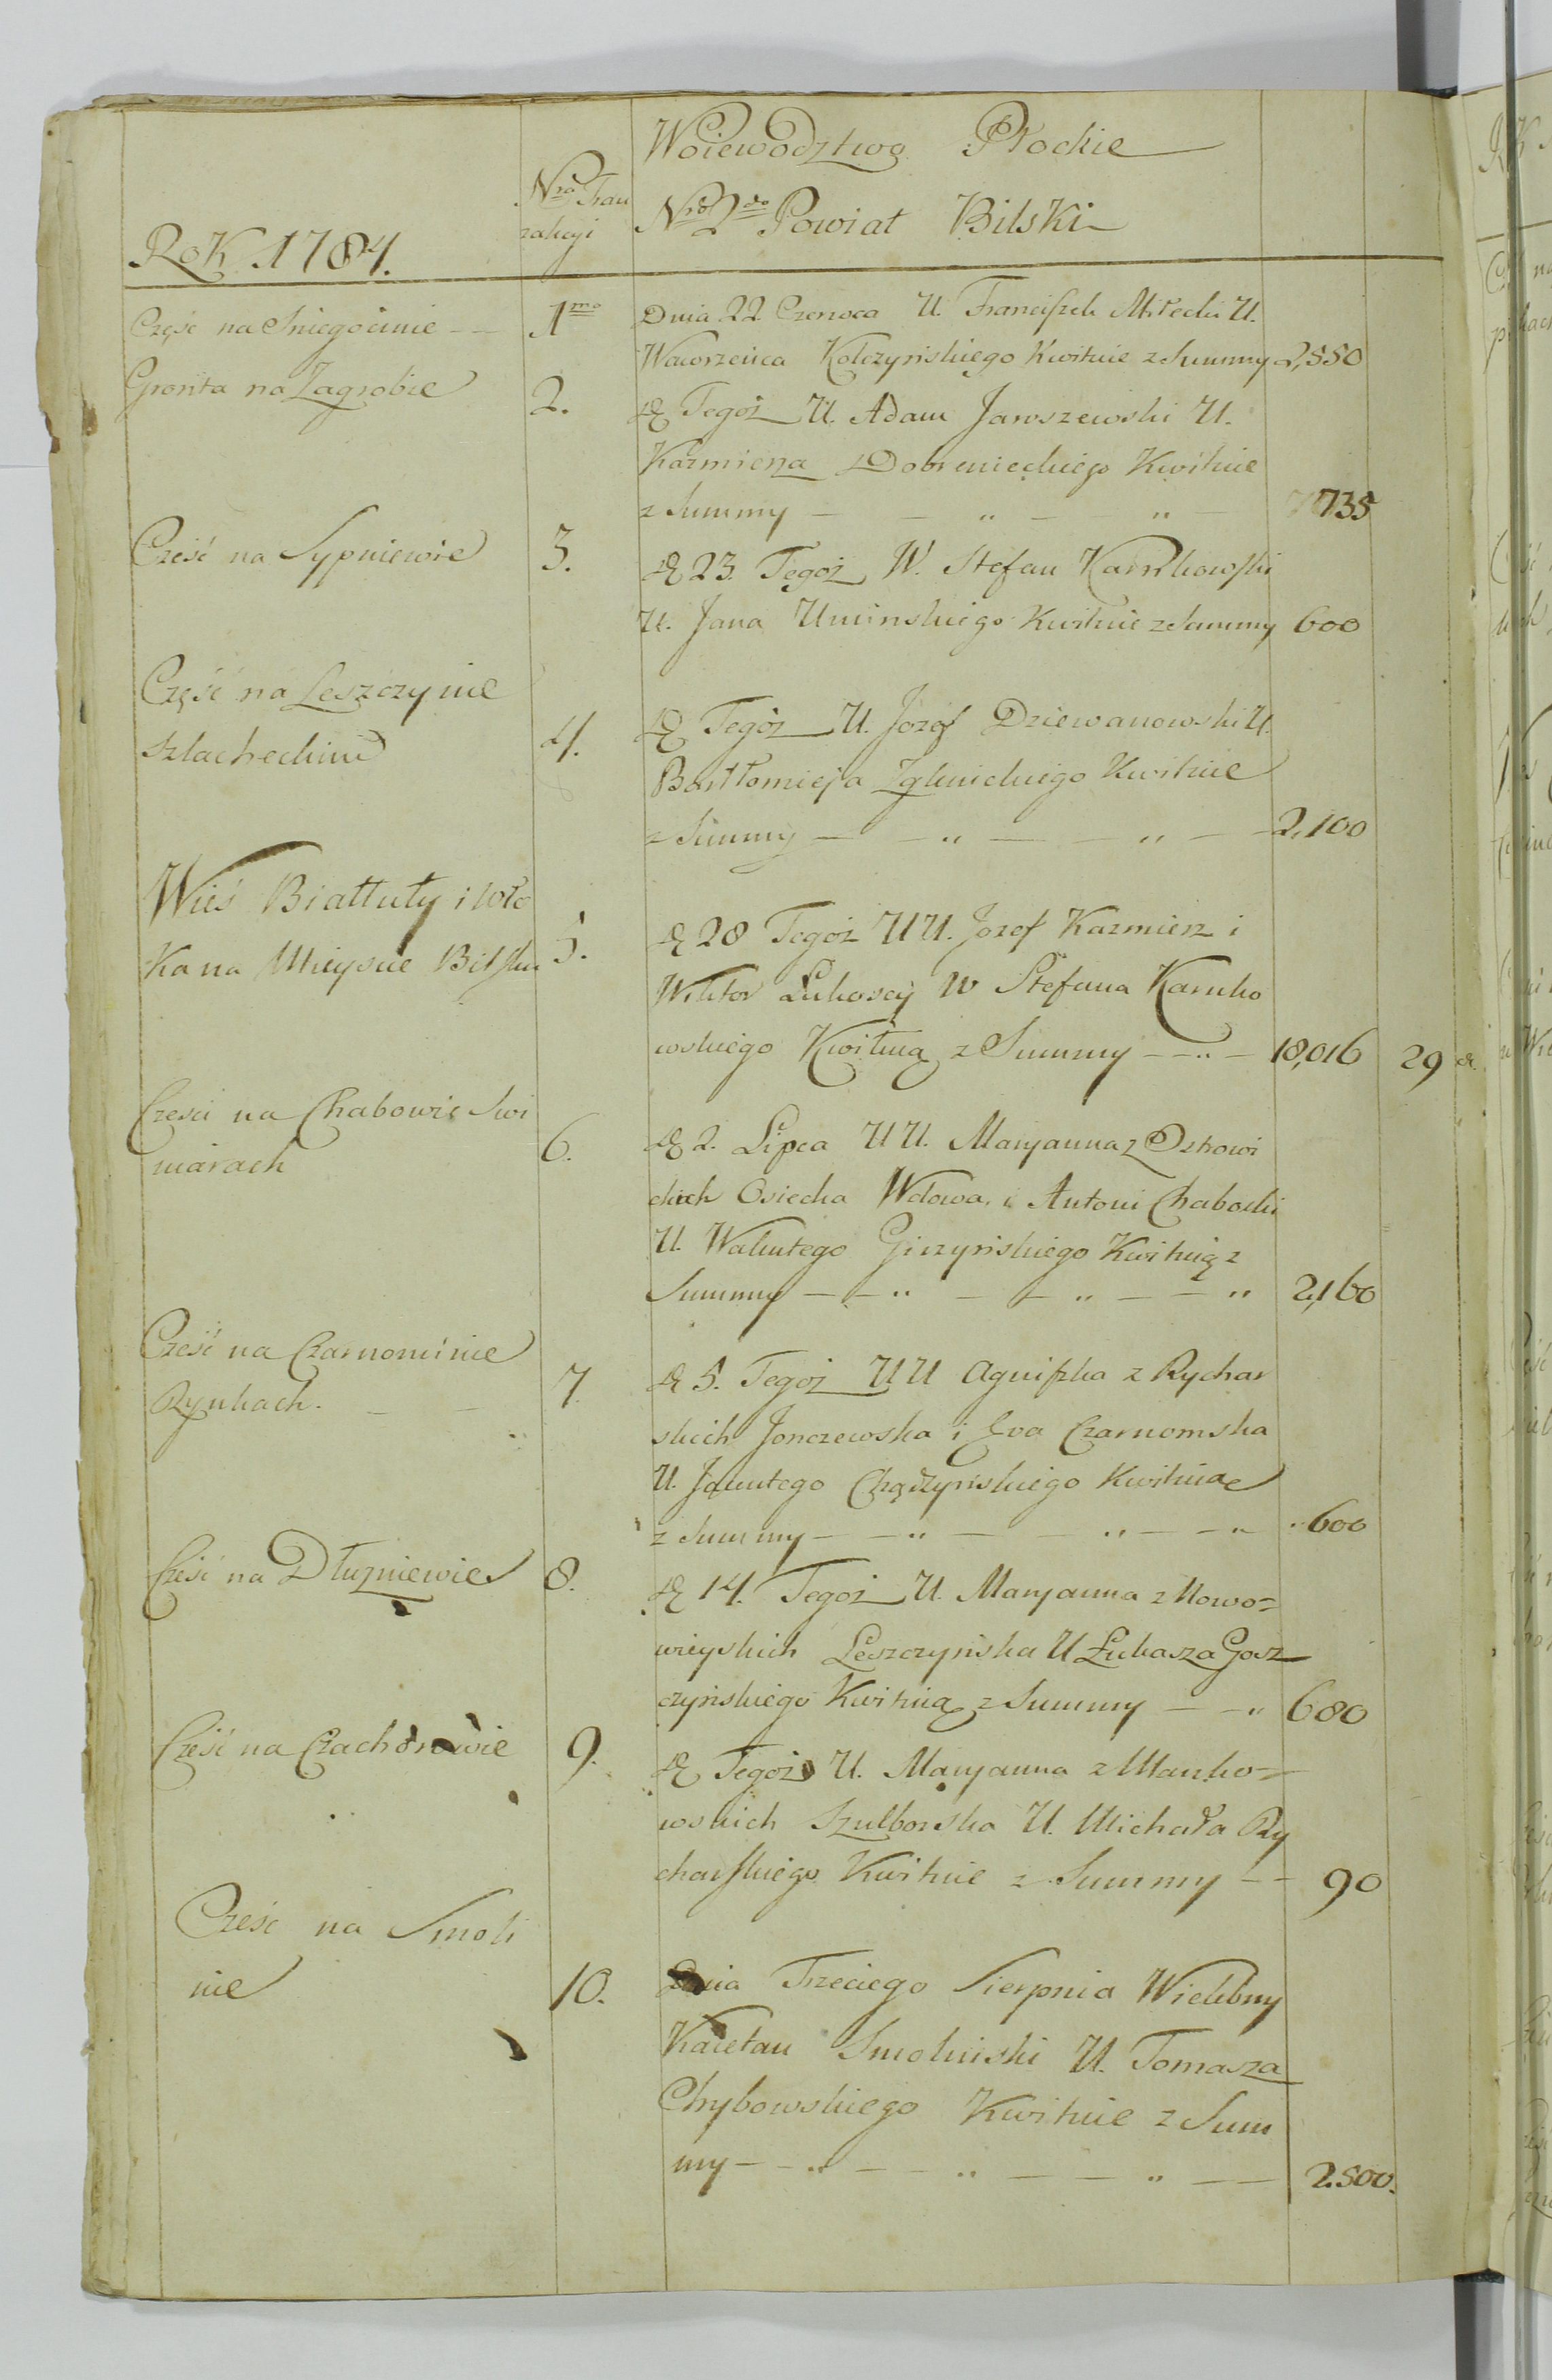 Woiewodztwo Płockie
Nro Tran
zakcyi
Nro 2do Powiat Bilski
Rok 1784.
Część na Sniegocinie - -
1mo
Dnia 22 Czerwca U. Franciszek Miłecki U.
Wawrzeńca Kolczyńskiego Kwituie z Summy 2,550
Gronta na Zagrobie
2.
D Tegoż U. Adam Jaroszewski U.
Kazmierza Dobrenieckiego Kwituie
z Summy — — „ — „ — 735
Cześć na Sypniewie
3.
D 23. Tegoż W. Stefan Karnkowski
U. Jana Uminskiego Kwituie z Summy 600
Część na Leszczynie
szlacheckim
4.
D Tegoż U. Jozef Dziewanowski U.
Bartłomieja Zglinickiego Kwituie
z Summy — — „ — — „ — — 2,100
Wieś Białtuty i wło
ka na Mieyscu Bilsku
5.
D 28 Tegoż UU. Jozef Kazmierz i
Wiktor Łukoscy W Stefana Karnko
wskiego Kwituią z Summy — — „ — 18,016 29
Czesci na Chabowie Swi
niarach
6.
D 2. Lipca UU. Maryanna z Ostrowi
ckich Osiecka Wdowa, i Antoni Chaboski
U. Walentego Giżyńskiego Kwituią z
Summy — — „ — — „ — — „ 2,160
Cześć na Czarnominie
Rynkach. — —
7.
D 5. Tegoż UU Agniszka z Rychar
skich Jonczewska i Ewa Czarnomska
U. Jacentego Chądzyńskiego Kwituia
z Summy — — „ — — „ — — „ 600
Cześć na Dłużniewie
8.
D 14. Tegoż U. Maryanna z Nowo=
wieyskich Leszczyńska U Łukasza Gosz
czyńskiego Kwituią z Summy — — „ 680
Cześć na Czachorowie
9.
D Tegoż U. Maryanna z Mańko=
wskich Szulborska U. Michała Ry
charskiego Kwituie z Summy — — 90
Cześć na Smoli
nie
10.
Dnia Trzeciego Sierpnia Wielebny
Kaietan Smoliński U. Tomasza
Chybowskiego Kwituie z Sum
my — — „ — — „ — — „ — — 2.500.